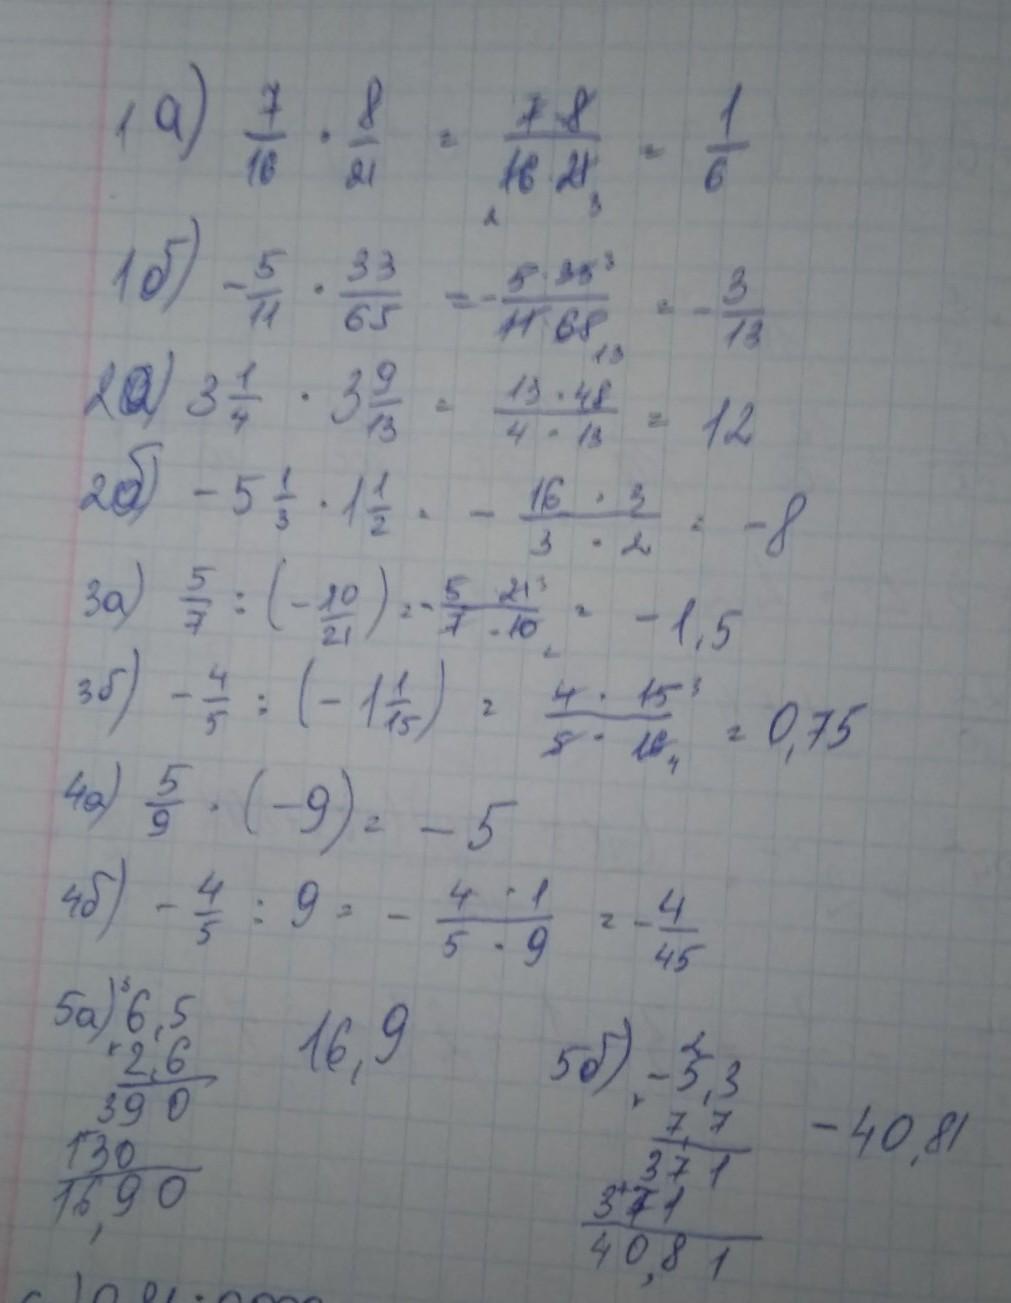 1а) 7/16 · 8/21 = 7·8/16·21 2 3 = 1/6
1б) -5/11 · 33/65 = -5·33 3/11·65 13 = -3/13
2а) 3 1/4 · 3 9/13 = 13·48/4·13 = 12
2б) -5 1/3 · 1 1/2 = -16·3/3·2 = -8
3а) 5/7 : (-10/21) = -5·21 3/7·10 2 = -1,5
3б) -4/5 : (-1 1/15) = 4·15 3/5·16 4 = 0,75
4а) 5/9 · (-9) = -5
4б) -4/5 : 9 = -4·1/5·9 = -4/45
5а) 3 6,5
2,6
390
130
16,90
16,9
5б) 2 -5,3
7,7
371
371
40,81
-40,81